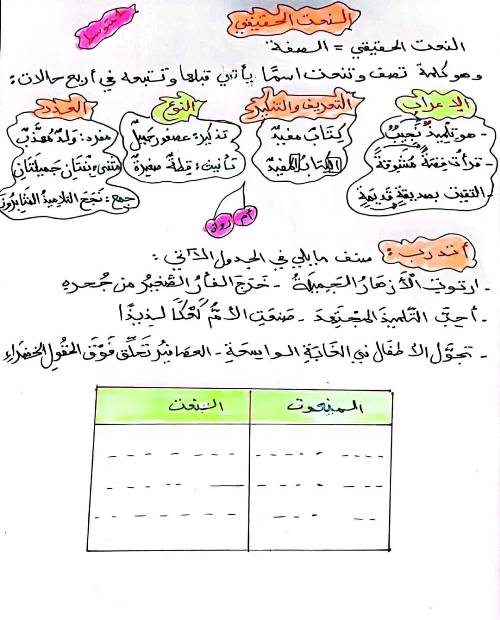 النعت الحقيقي
المتوسط
النعت الحقيقي = الصفة
وهو كلمة تصف وتنعت اسمًا يأتي قبلها وتتبعه في أربع حالات:
الإعراب
- هو تلميذٌ نجيبٌ
- قرأت قصةً مشوقةً
- التقيت بصديقةٍ قديمةٍ
التعريف والتنكير
كتابٌ مفيدٌ
الكتابُ المفيدُ
النوع
تذكير: عصفور جميلٌ
تأنيث: قطةٌ صغيرةٌ
العدد
مفرد: ولدٌ مهذّبٌ
مثنى: بنتَانِ جميلتَانِ
جمع: نجح التلاميذ المثابرون
أم رواء
أتدرب: صنف ما يلي في الجدول الآتي:
- ارتوتِ الأزهارُ الجميلةُ - خرج الفأرُ الصّغيرُ من جُحره
- أحبّ التّلميذَ المجتهدَ - صنعتِ الأمُّ كعكًا لذيذًا
- تجوّل الأطفال في الغابَةِ الواسعَةِ - العصافيرُ تحلّق فَوْقَ الحقولِ الخضراءِ
المنعوت النعت